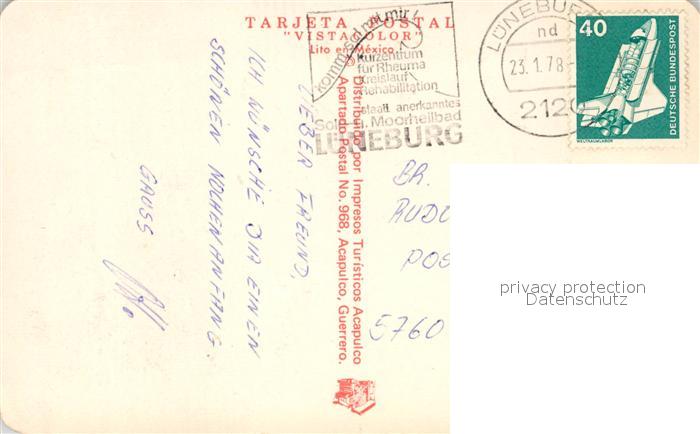 TARJETA POSTAL
"VISTACOLOR"
Lito en México
komm zu mir!
Kurzentrum
für Rheuma
Kreislauf
Rehabilitation
staatl. anerkanntes
Sol- u. Moorheilbad
LÜNEBURG
LÜNEBURG
nd
23.1.78-
2120
40
DEUTSCHE BUNDESPOST
WELTRAUMLABOR
Distribuido por Impresos Turísticos Acapulco
Apartado Postal No. 968, Acapulco, Guerrero.
LIEBER FREUND,
ICH WÜNSCHE DIR EINEN
SCHÖNEN WOCHENANFANG.
GRUSS
RUDO
POS
5760
privacy protection
Datenschutz